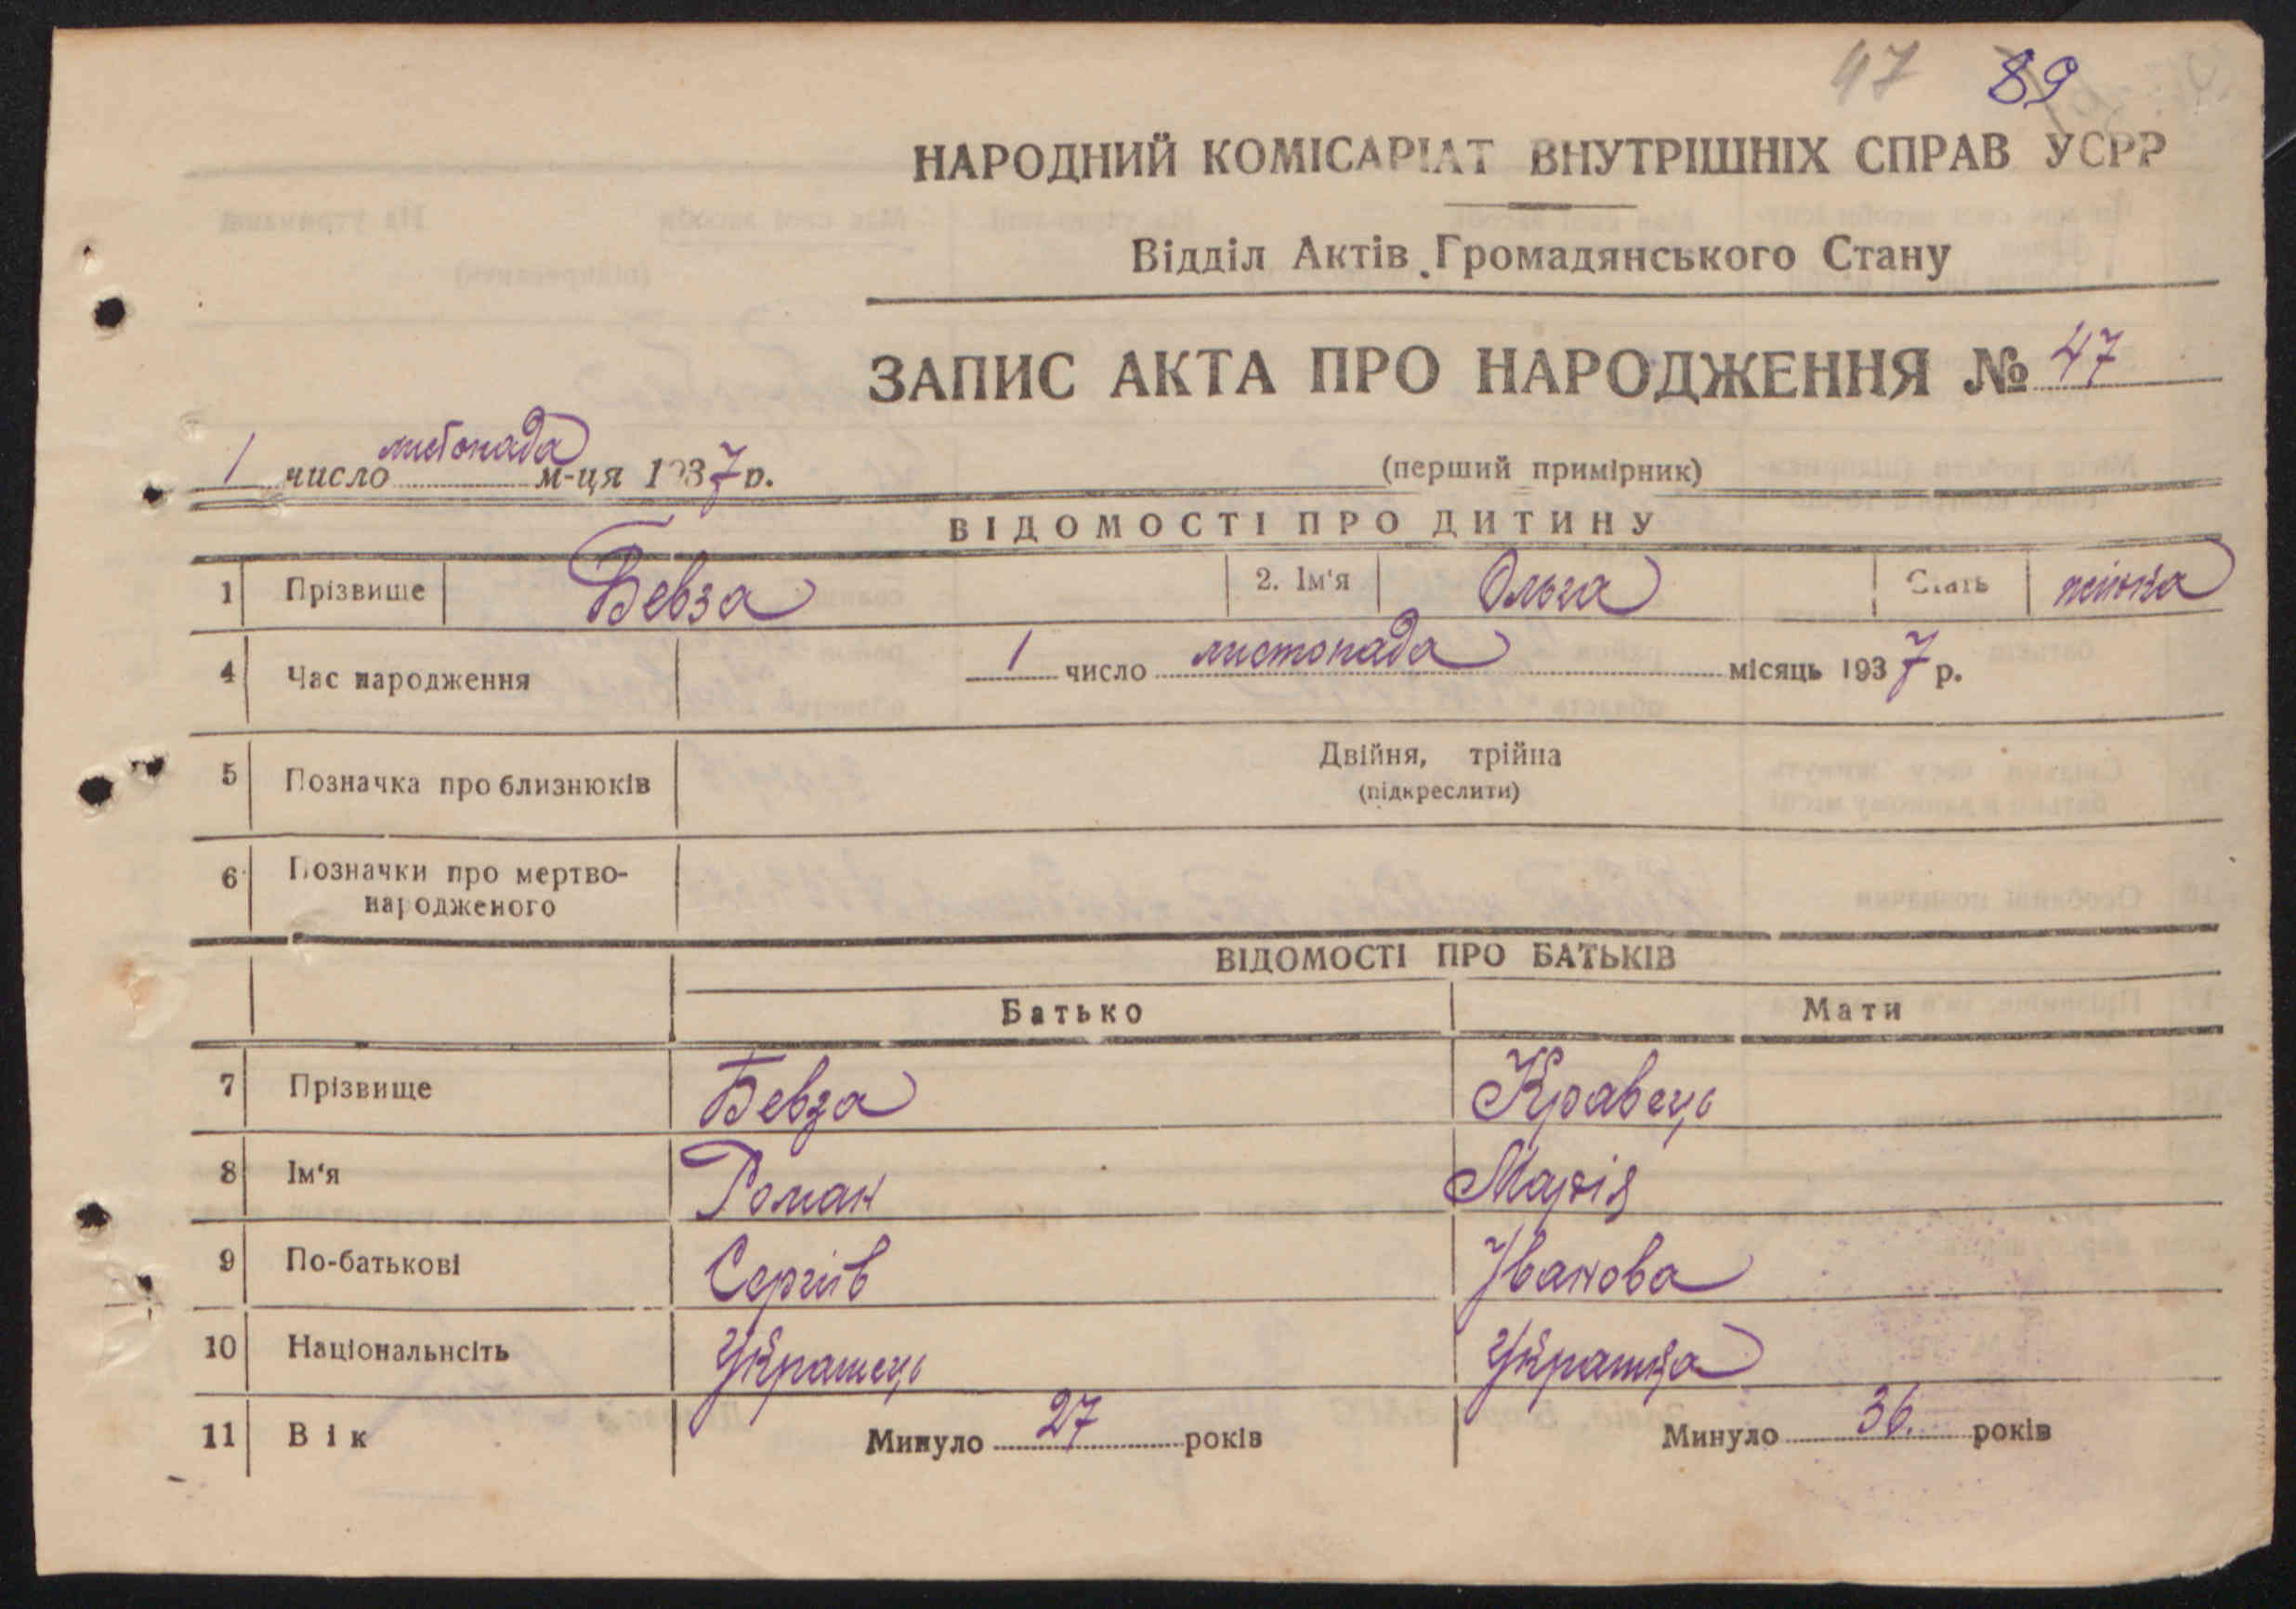 47 89
НАРОДНИЙ КОМІСАРІАТ ВНУТРІШНІХ СПРАВ УСРР
Відділ Актів Громадянського Стану
ЗАПИС АКТА ПРО НАРОДЖЕННЯ № 47
1 число листопада м-ця 1937 р.
(перший примірник)
ВІДОМОСТІ ПРО ДИТИНУ
1 Прізвище Бевза 2. Ім'я Ольга Стать жінка
4 Час народження 1 число листопада місяць 1937 р.
5 Позначка про близнюків Двійня, трійна
(підкреслити)
6 Позначки про мертво-
народженого
ВІДОМОСТІ ПРО БАТЬКІВ
Батько Мати
7 Прізвище Бевза Кравець
8 Ім'я Роман Марія
9 По-батькові Сергіїв Іванова
10 Національнсіть Українець Українка
11 Вік Минуло 27 років Минуло 36. років